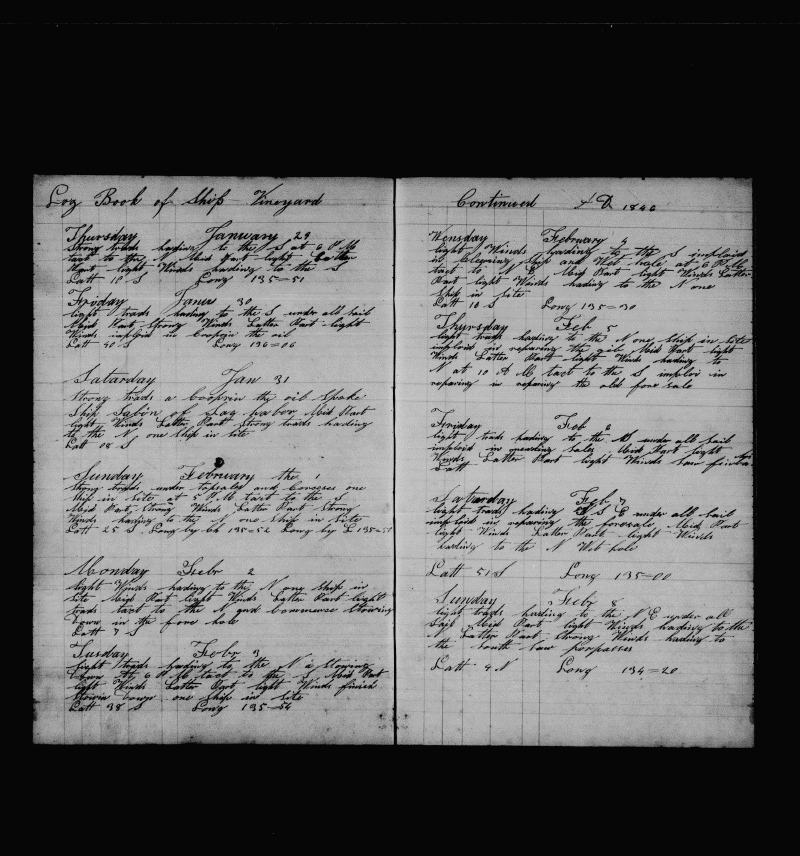 Log Book of Ship Vineyard
Thursday January 29
Strong trads heading to the S at 6 P M
tact to the N Mid Part light Latter
Part light Winds heading to the S
Latt 10 S Long 135=51
Friday Janur 30
light trads heading to the S under all sail
Mid Part Strong Winds Latter Part light
Winds imploid in Cooprin the oil
Latt 40 S Long 136=06
Satarday Jan 31
Strong trads a booprin the oil Spoke
Ship Sabin of Sag harbor Mid Part
light Winds Latter Part Strong trads heading
to the N one Ship in site
Latt 08 S
Sunday February the 1
Strong trads under topsales and Corcses one
Ship in Site at 5 P M tact to the S
Mid Part Strong Winds Latter Part Strong
Winds heading to the N one Ship in Site
Latt 25 S Long by Ch 135=52 Long by L 135=51
Monday Febr 2
light Winds heading to the N one Ship in
Site Mid Part light Winds Latter Part light
trads tact to the N and Commence Stowing
Down in the fore hole
Latt 7 S
Tusday Febr 3
light trads heading to the N a Stowing
Down at 6 P M tact to the S Mid Part
light Winds Latter Part light Winds finish
Stowin Down one Ship in Site
Latt 38 S Long 135=54
Continued A D 1846
Wensday February 4
light Winds heading to the S imploid
in Cleaning Ship and Wet hole at 6 P M
tact to N E Mid Part light Winds Latter
Part light Winds heading to the N one
Ship in Site
Latt 10 S Long 135=30
Thursday Feb 5
light trads heading to the N one Ship in Site
imploid in reparing the oil Mid Part light
Winds Latter Part light Winds heading to
N at 10 A M tact to the S imploi in
reparing in reparing the old fore sale
Friday Feb 6
light trads heading to the S under all sail
imploid in mending sales Mid Part light
Winds Latter Part light Winds saw
Latt
Satarday Feb 7
light trads heading S S E under all sail
imploid in reparing the foresale Mid Part
light Winds Latter Part light Winds
heading to the N Wet hole
Latt 51 S Long 135=00
Sunday Febr 8
light trads heading to the N E under all
Sail Mid Part light Winds heading to the
N Latter Part Strong Winds heading to
the South saw porpasses
Latt 9 N Long 134=20